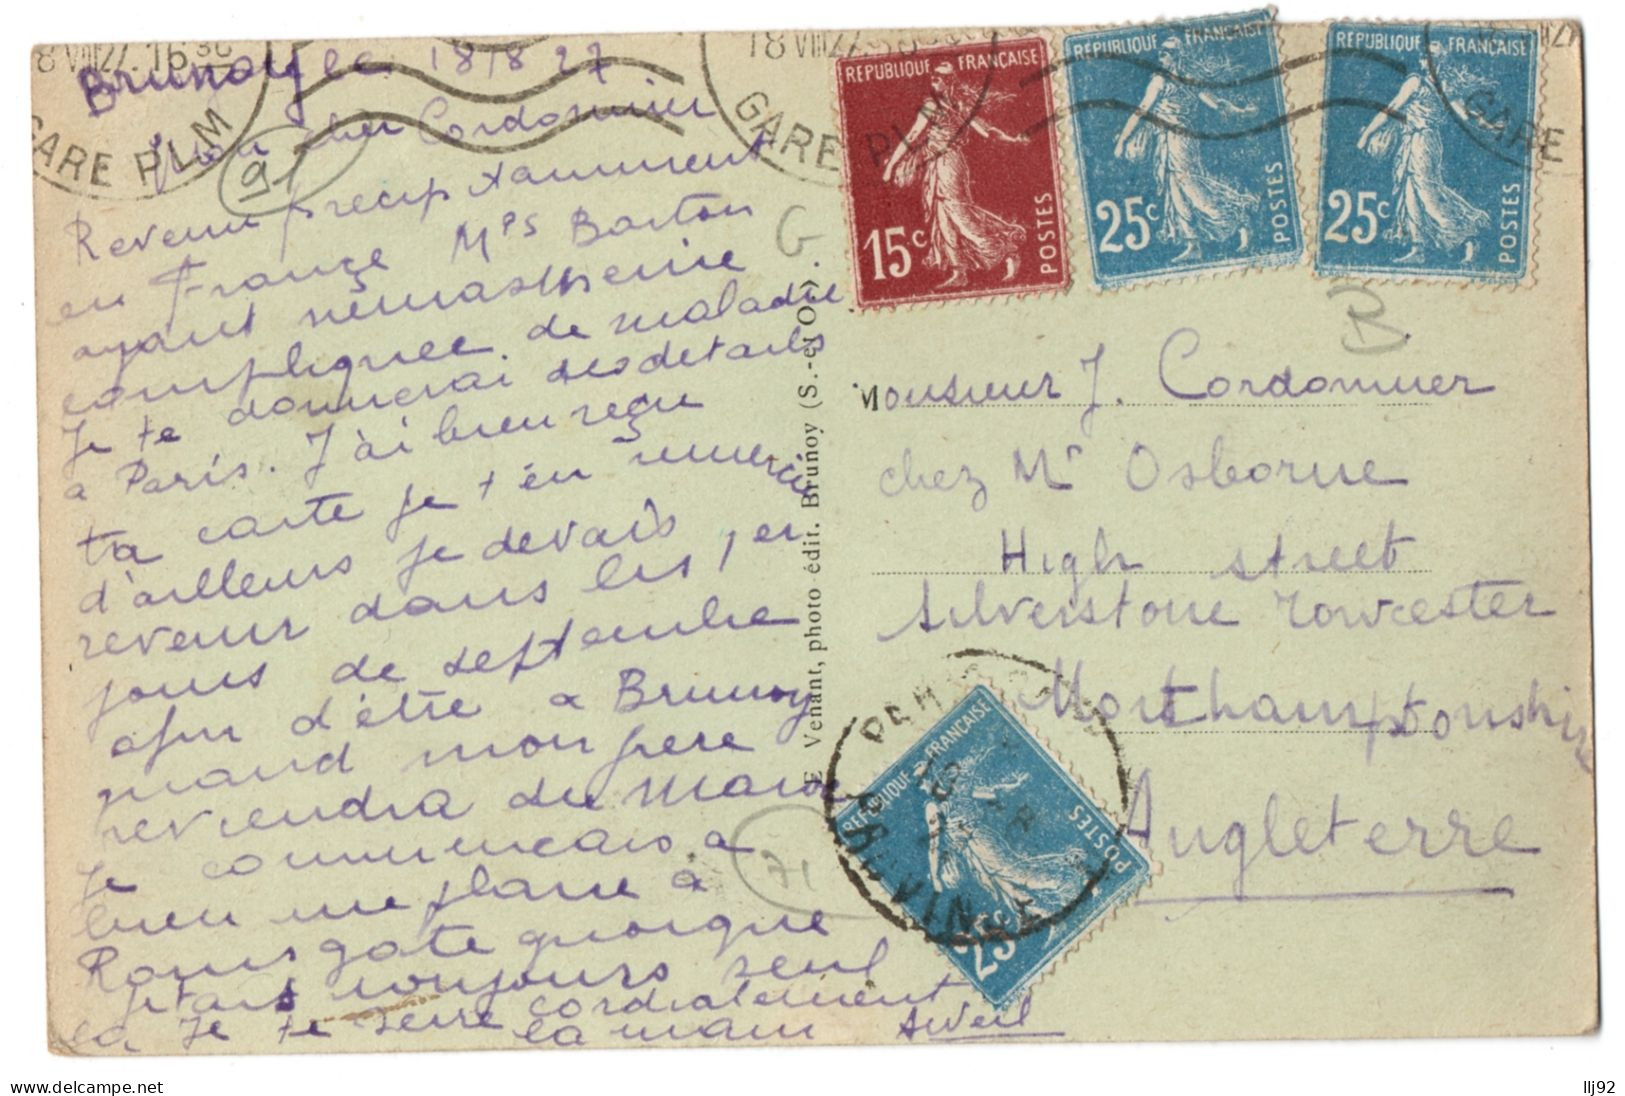 8 VIII27. 16 30
GARE PLM
18 VIII27
GARE PLM
GARE
Brunoy le 18/8 27.
Mon cher Cordonnier
91
Revenu precipitamment
en France Mrs Barton
ayant neurasthenie
compliquée de maladie.
Je te donnerai des details
a Paris. J'ai bien reçu
ta carte je t'en remercie
d'ailleurs je devais
revenir dans les 1 er
jours de septembre
afin d'être a Brunoy
quand mon pere
reviendra du Maroc
Je commencais a
bien me plaire a
Ramsgate quoique
j'etais toujours seul
Je te serre cordialement
la main
71
G
B
E Venant, photo édit. Brunoy (S.-et O.)
REPUBLIQUE FRANÇAISE
15c
POSTES
REPUBLIQUE FRANÇAISE
25c
POSTES
REPUBLIQUE FRANÇAISE
25c
POSTES
Monsieur J. Cordonnier
chez Mr Osborne
High street
Silverstone Towcester
Northamptonshire
Angleterre
REPUBLIQUE FRANÇAISE
25c
POSTES
llj92